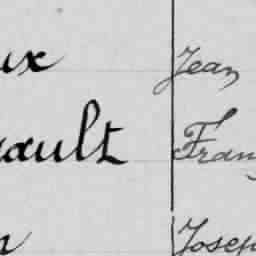 ux Jean
ault Fran
n Joseph